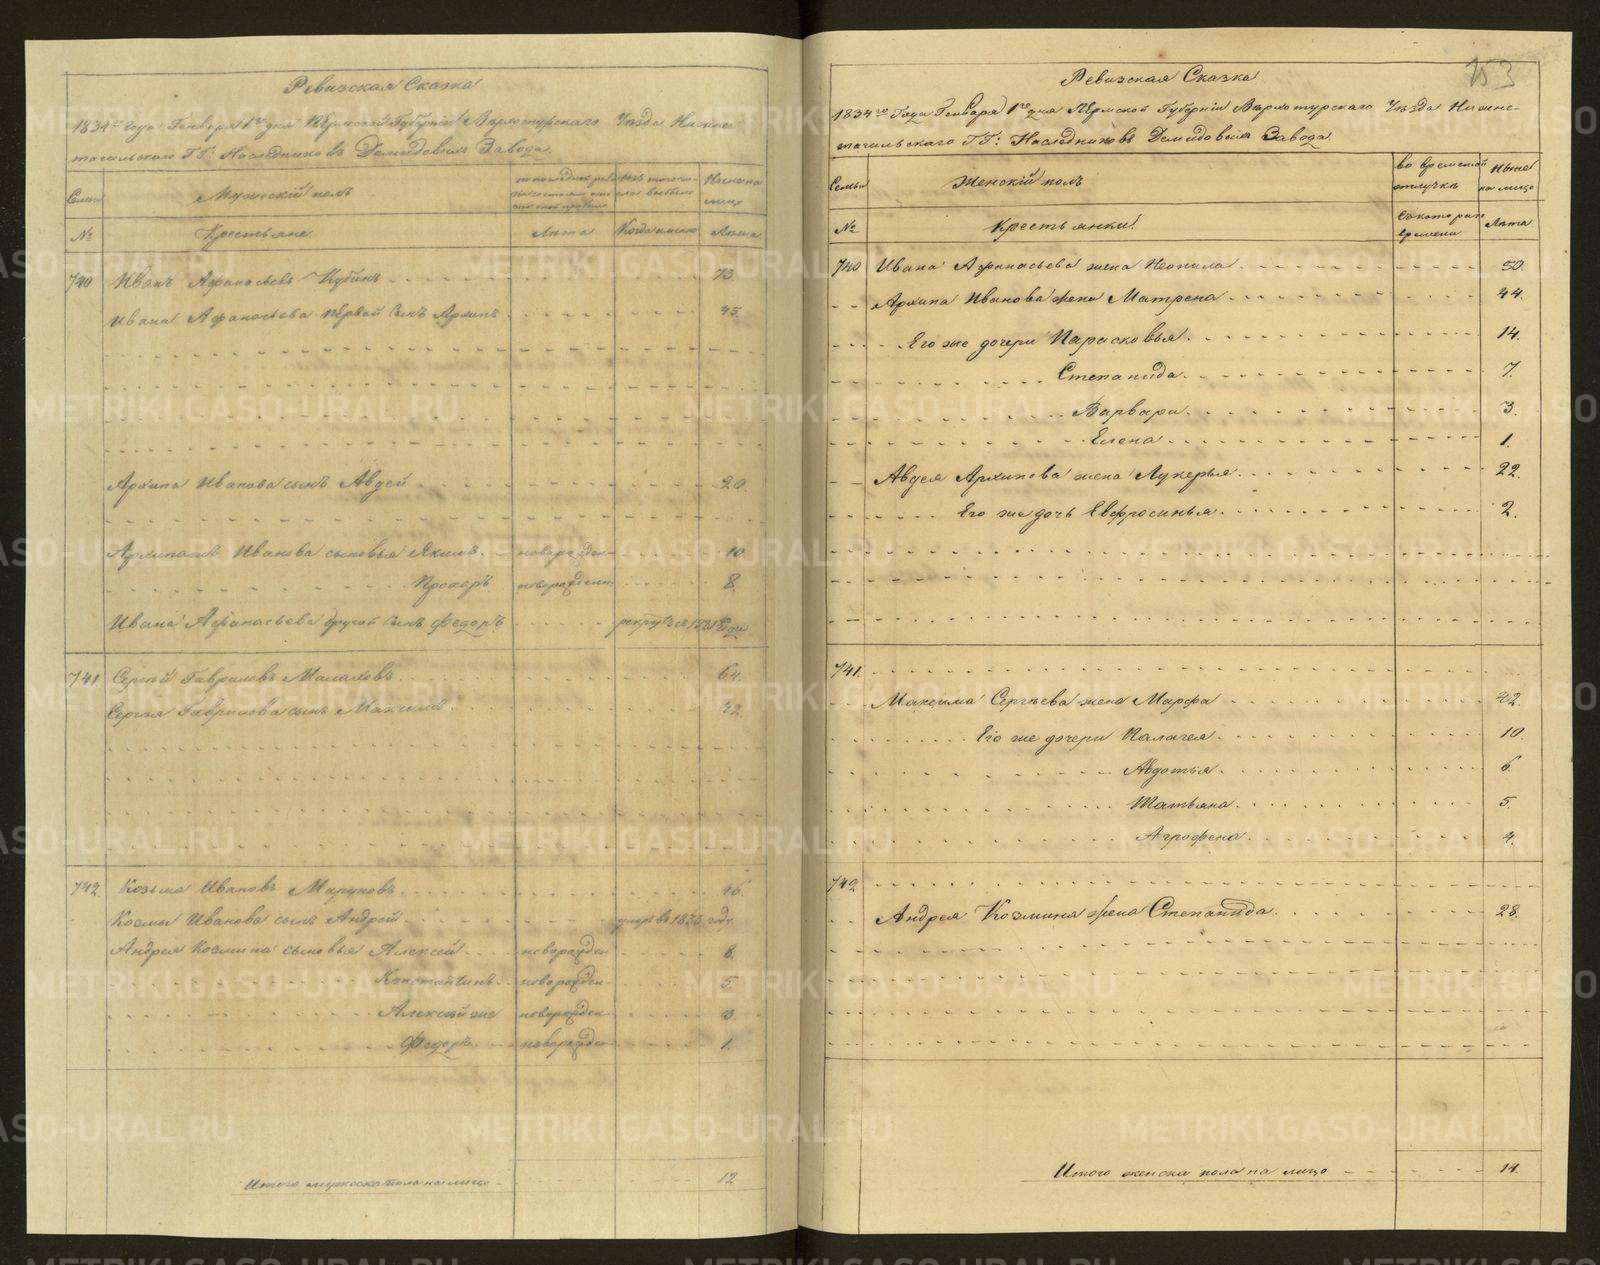 Ревизская Сказка
1834го года Генваря 1го дня Пермской Губернiи Верхотурскаго Уѣзда Нижне-
тагильскаго ГГ: Наследниковъ Демидовыхъ Завода.
Семьи
Мужескiй полъ
Ныне на
лицо
№
Крестьяне
Лѣта
Когда имянно
Лѣта
740 Иванъ Афанасьевъ 73.
Ивана Афанасьева первой сынъ Архипъ 45.
Архипа Иванова сынъ Авдей 20.
Иванова сыновья Якимъ новорожден 10
Прохоръ новорожден 8.
Ивана Афанасьева другой сынъ Федоръ
741. Сергѣй Гавриловъ Малаховъ 64.
Сергея Гаврилова сынъ Максимъ 42
742 Козьма Ивановъ
Козмы Иванова сынъ Андрей умре въ 1833 году
Андрея Козмина сыновья Алексей новорожден 8.
Константинъ новорожден 5.
Алексѣй же новорожден 3.
Федоръ новорожден 1.
Итого мужеска пола на лицо 12
153
Ревизская Сказка
1834го Года Генваря 1го дня Пермской Губернiи Верхотурскаго Уѣзда Нижне-
тагильскаго ГГ: Наследниковъ Демидовыхъ Завода.
Семьи
Женскiй полъ
во временной
отлучкѣ
Ныне
на лицо
№
Крестьянки
Съ котораго
времени
Лѣта
740 Ивана Афанасьева жена Неонила 50.
Архипа Иванова жена Матрена 44.
Его же дочери Парасковья 14.
Степанида 7.
Варвара 3.
Елена 1.
Авдея Архипова жена Лукерья 22.
Его же дочь Евфросинья 2.
741.
Максима Сергѣева жена Марфа 42.
Его же дочери Палагея 10
Авдотья 6.
Татьяна 5.
Агрофена 4.
742
Андрея Козмина жена Степанида 28.
Итого женска пола на лицо 14.
METRIKI.GASO-URAL.RU